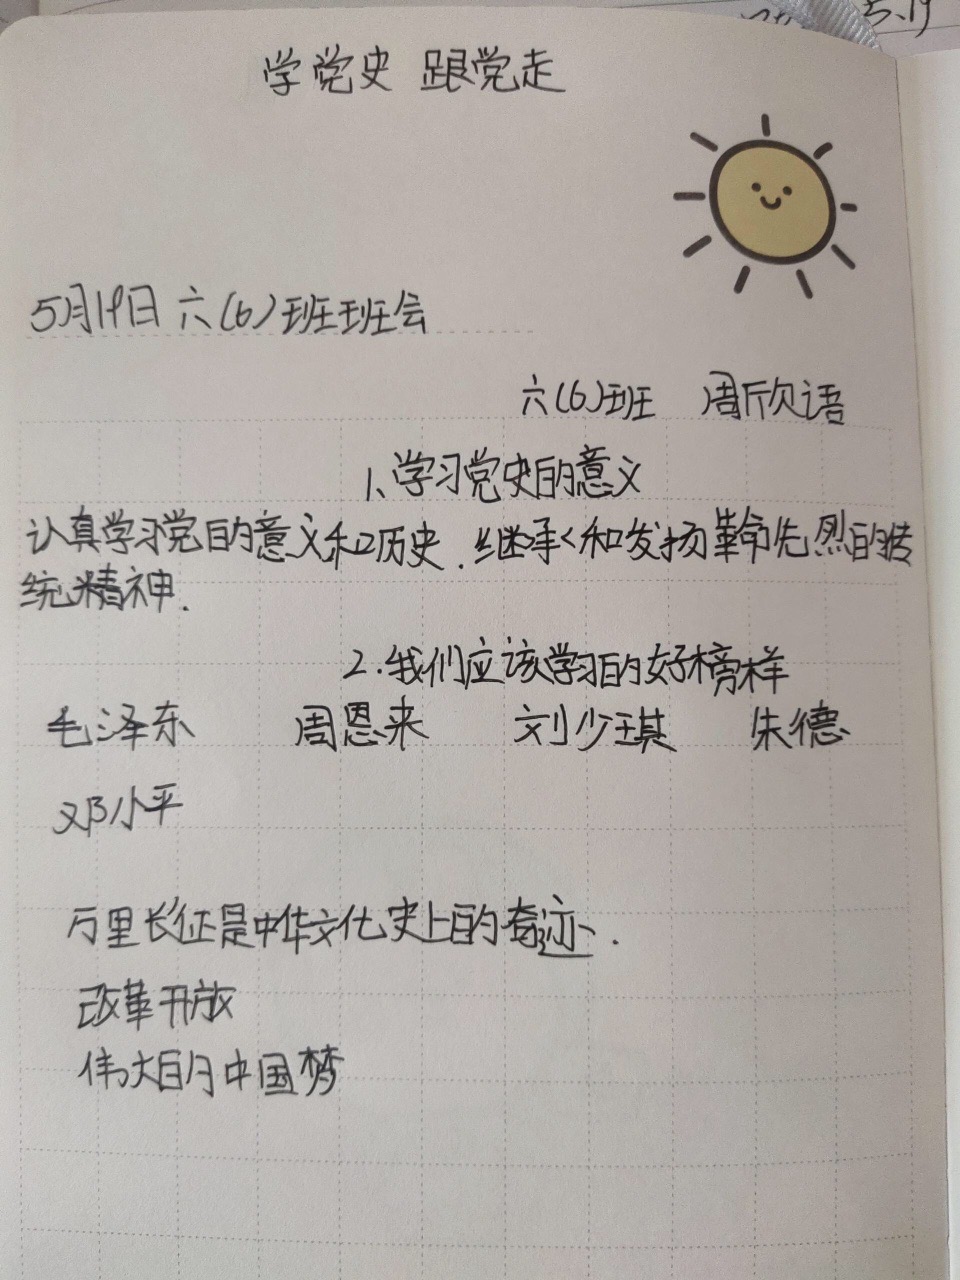 5.19
学党史 跟党走
5月19日 六(6)班班会
六(6)班 周欣语
1、学习党史的意义
认真学习党的意义和历史.继承和发扬革命先烈的传
统精神.
2.我们应该学习的好榜样
毛泽东 周恩来 刘少琪 朱德
邓小平
万里长征是中华文化史上的奇迹.
改革开放
伟大的中国梦